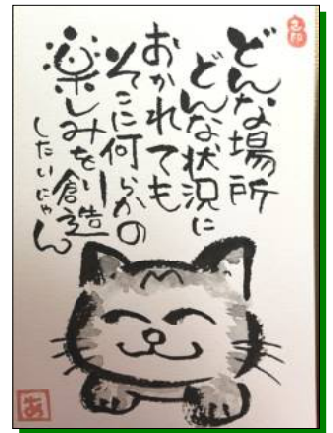 どんな場所
どんな状況に
おかれても
そこに何らかの
楽しみを創造
したいにゃん
あ